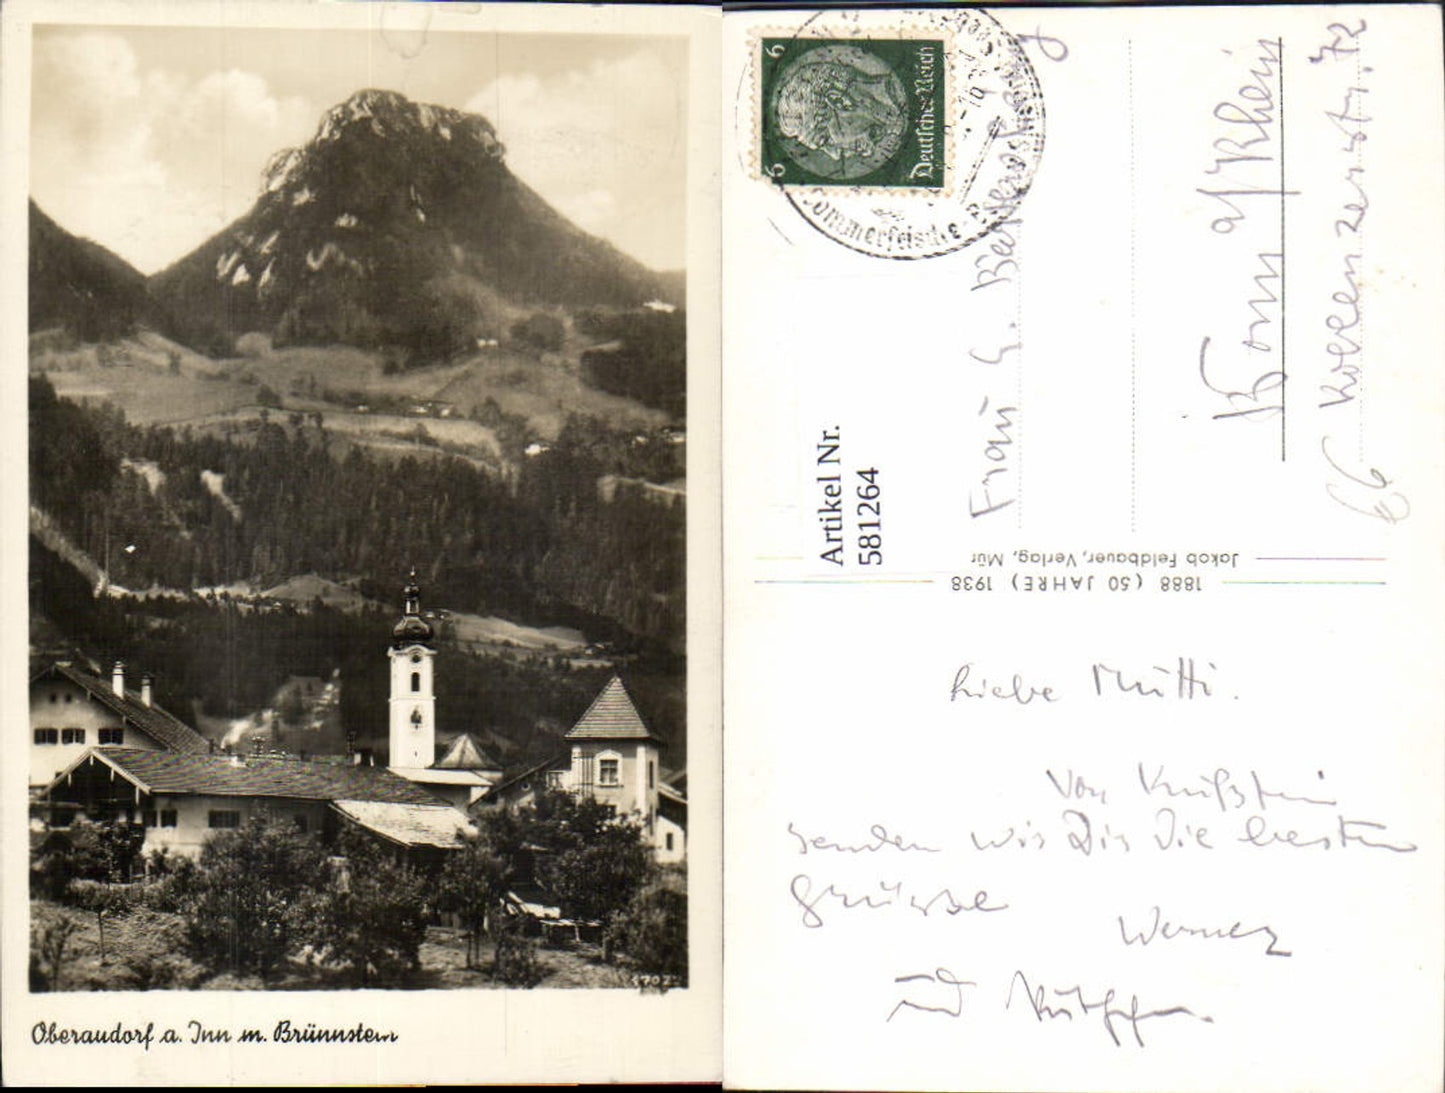 Oberaudorf a. Inn m. Brünnstein
6702
6
6
Deutsches Reich
Sommerfrische
Artikel Nr.
581264
Frau G.
Bonn a/Rhein
Koblenzerstr. 72
Jakob Feldbauer, Verlag, Mür
1888 (50 JAHRE) 1938
Liebe Mutti.
Von Kufstein
senden wir Dir die besten
Grüsse
Werner
und